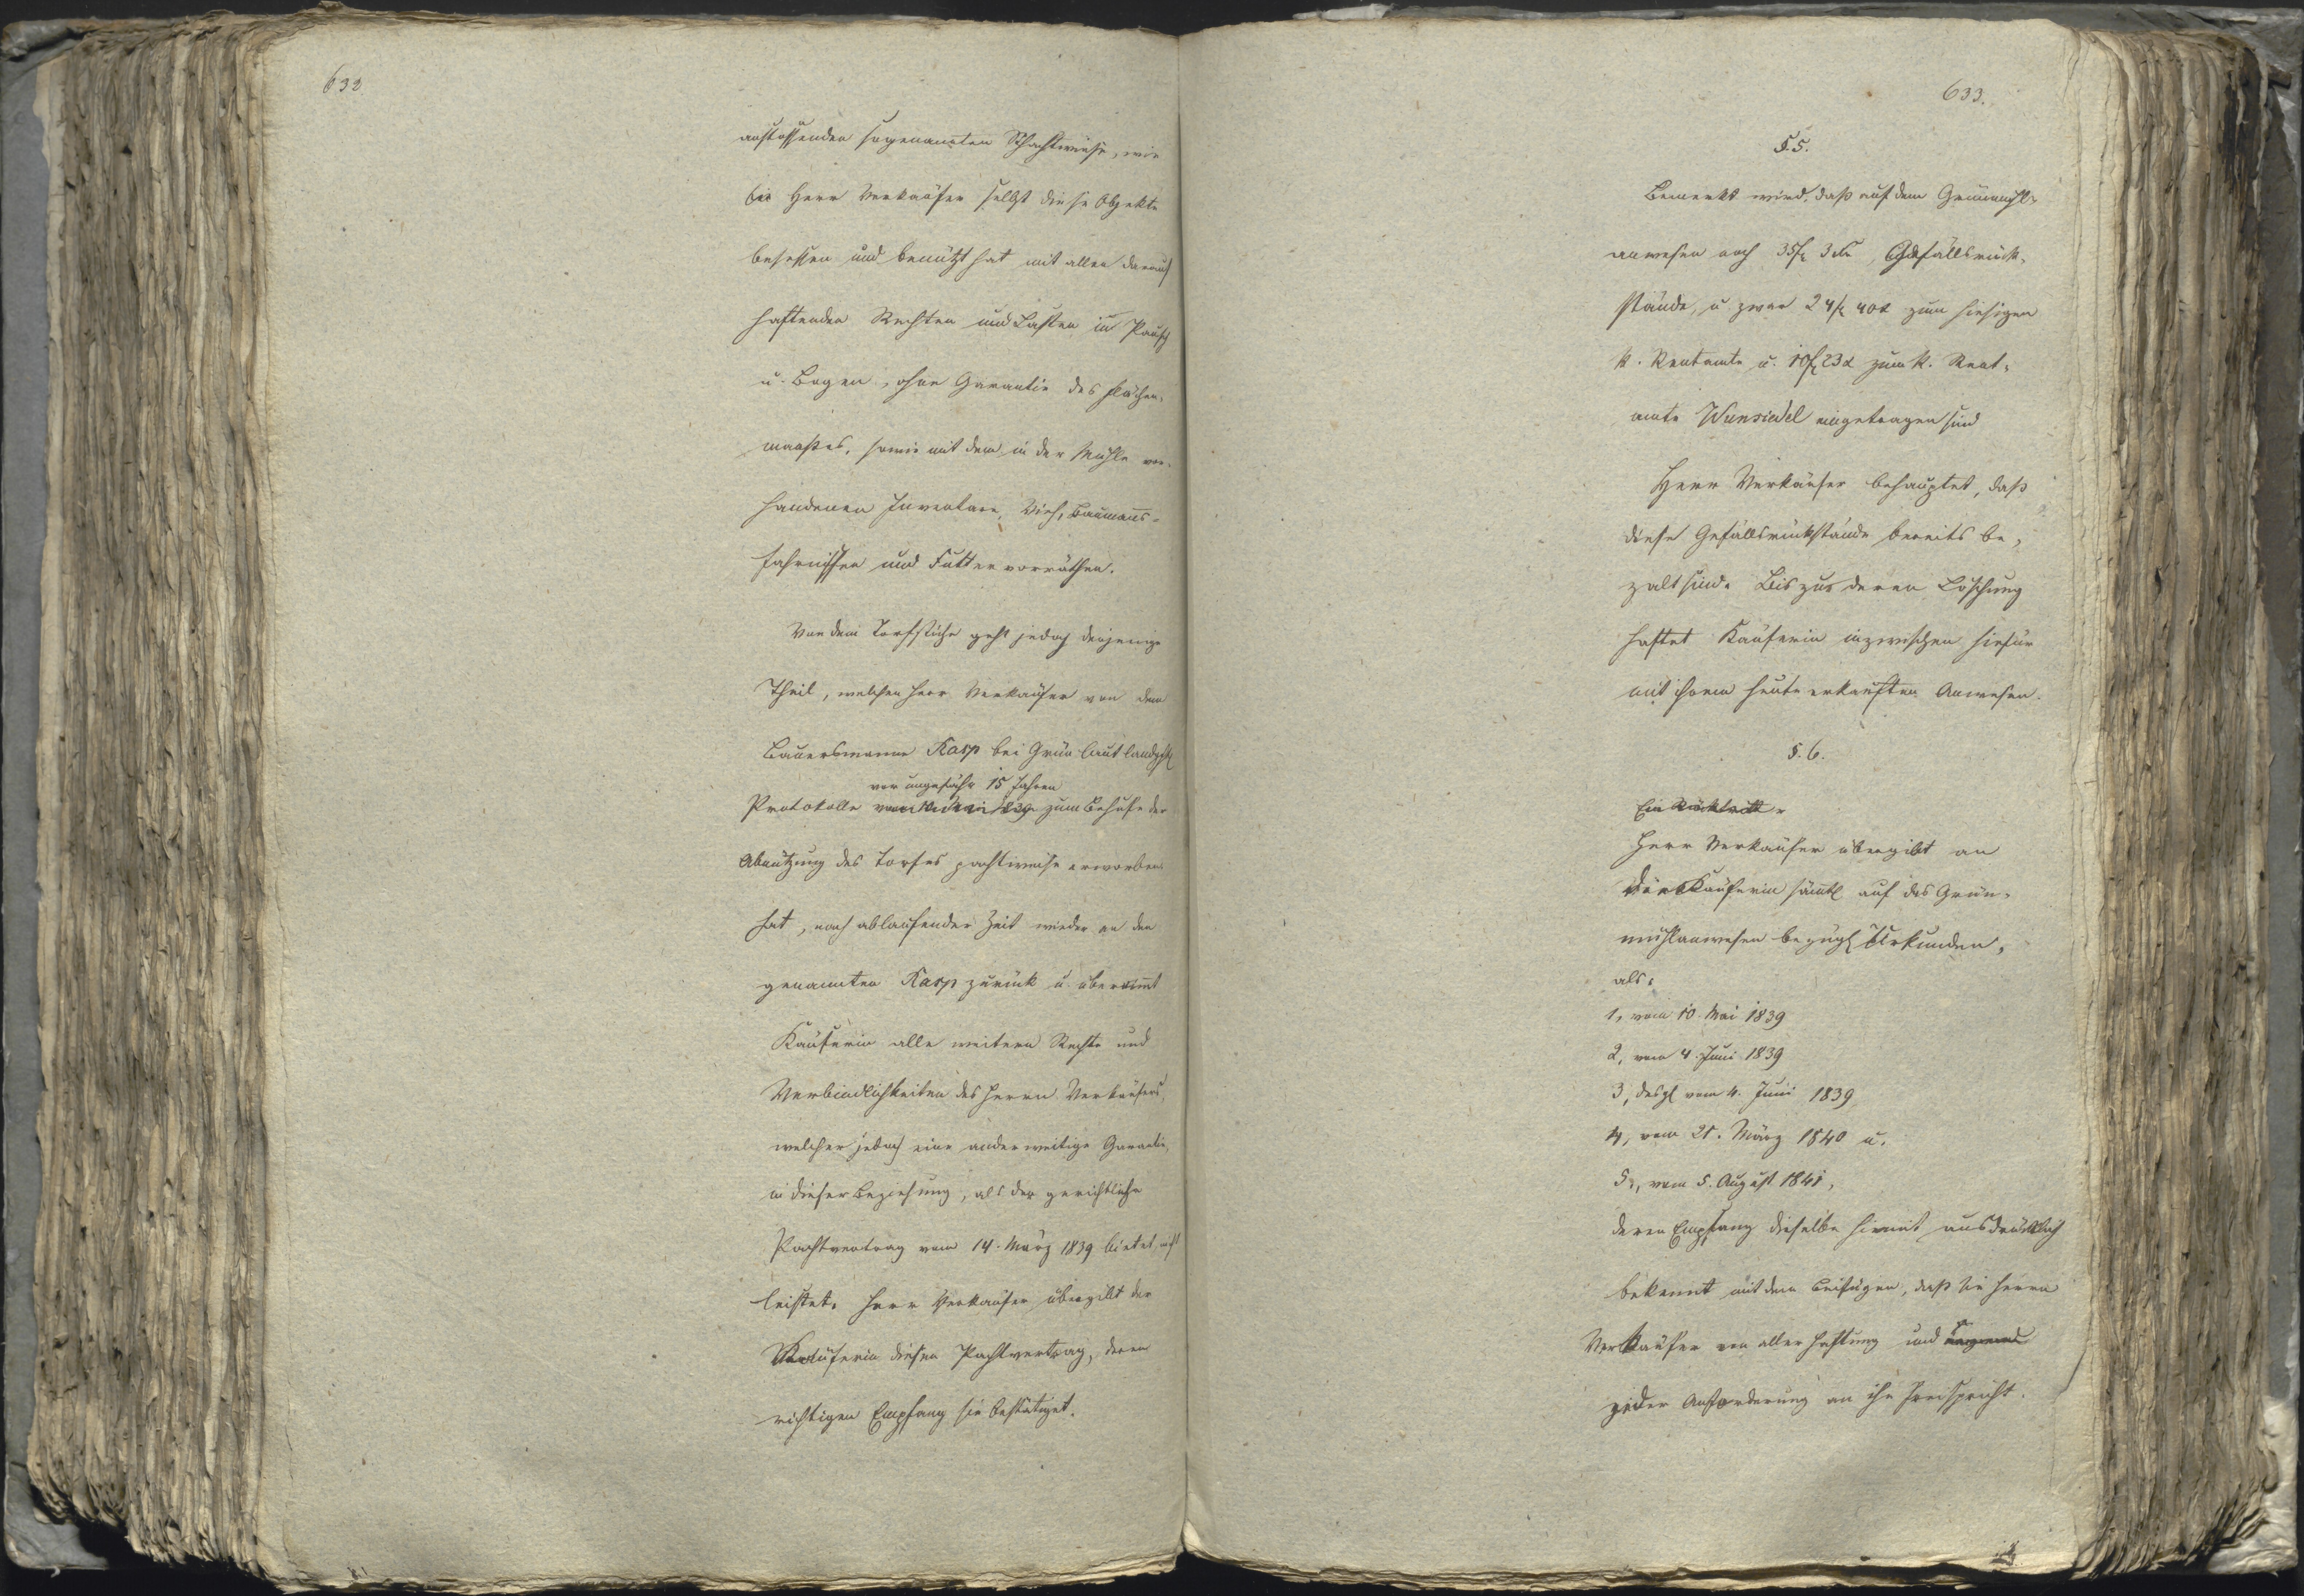 632
anstoßenden sogenannten Schachtwiese, wie
sie Herr Verkäufer selbst diese Objekte
besessen und benützt hat mit allen darauf
haftenden Rechten und Lasten in Pausch
u. Bogen, ohne Garantie des Flächen-
maaßes, sowie mit dem in der Mühle vor-
handenen Inventare, Vieh, Baumanns-
fahrnissen und Futtervorräthen.
Von dem Torfstiche geht jedoch derjenige
Theil, welchen Herr Verkäufer von dem
Bauersmanne Kasp bei Grün laut landgchtl
vor ungefähr 15 Jahren
Protokolle zum Behufe der
Abnützung des Torfes pachtweise erworben
hat, nach ablaufender Zeit wieder an den
genannten Kasp zurück u. übernimmt
Käuferin alle weitern Rechte und
Verbindlichkeiten des Herrn Verkäufers,
welcher jedoch eine anderweitige Garantie,
in dieser Beziehung, als der gerichtliche
Pachtvertrag vom 14. März 1839 bietet, nicht
leistet. Herr Verkäufer übergibt der
Käuferin diesen Pachtvertrag, deren
richtigen Empfang sie bestätiget.
633.
§. 5.
Bemerkt wird, daß auf dem Grünmühl-
anwesen noch 35 f 3 x Gefällsrück-
stände, u zwar 24 f 40 x zum hiesigen
k. Rentamte u. 10 f 23 x zum k. Rent-
amte Wunsiedel eingetragen sind
Herr Verkäufer behauptet, daß
diese Gefällsrückstände bereits be-
zalt sind. Bis zur deren Löschung
haftet Käuferin inzwischen hiefür
mit ihrem heute erkauften Anwesen.
§. 6.
Ein Rücktritt
Herr Verkäufer übergibt an
die Käuferin sämtl auf das Grün-
mühlanwesen bezügl Urkunden,
als:
1, vom 10. Mai 1839
2, vom 4. Juni 1839
3, desgl vom 4. Juni 1839
4, vom 21. März 1840 u.
5, vom 5. August 1841,
deren Empfang dieselbe hiemit ausdrücklich
bekennt mit dem Beifügen, daß sie Herrn
Verkäufer von aller Haftung und
jeder Anforderung an ihn freispricht.